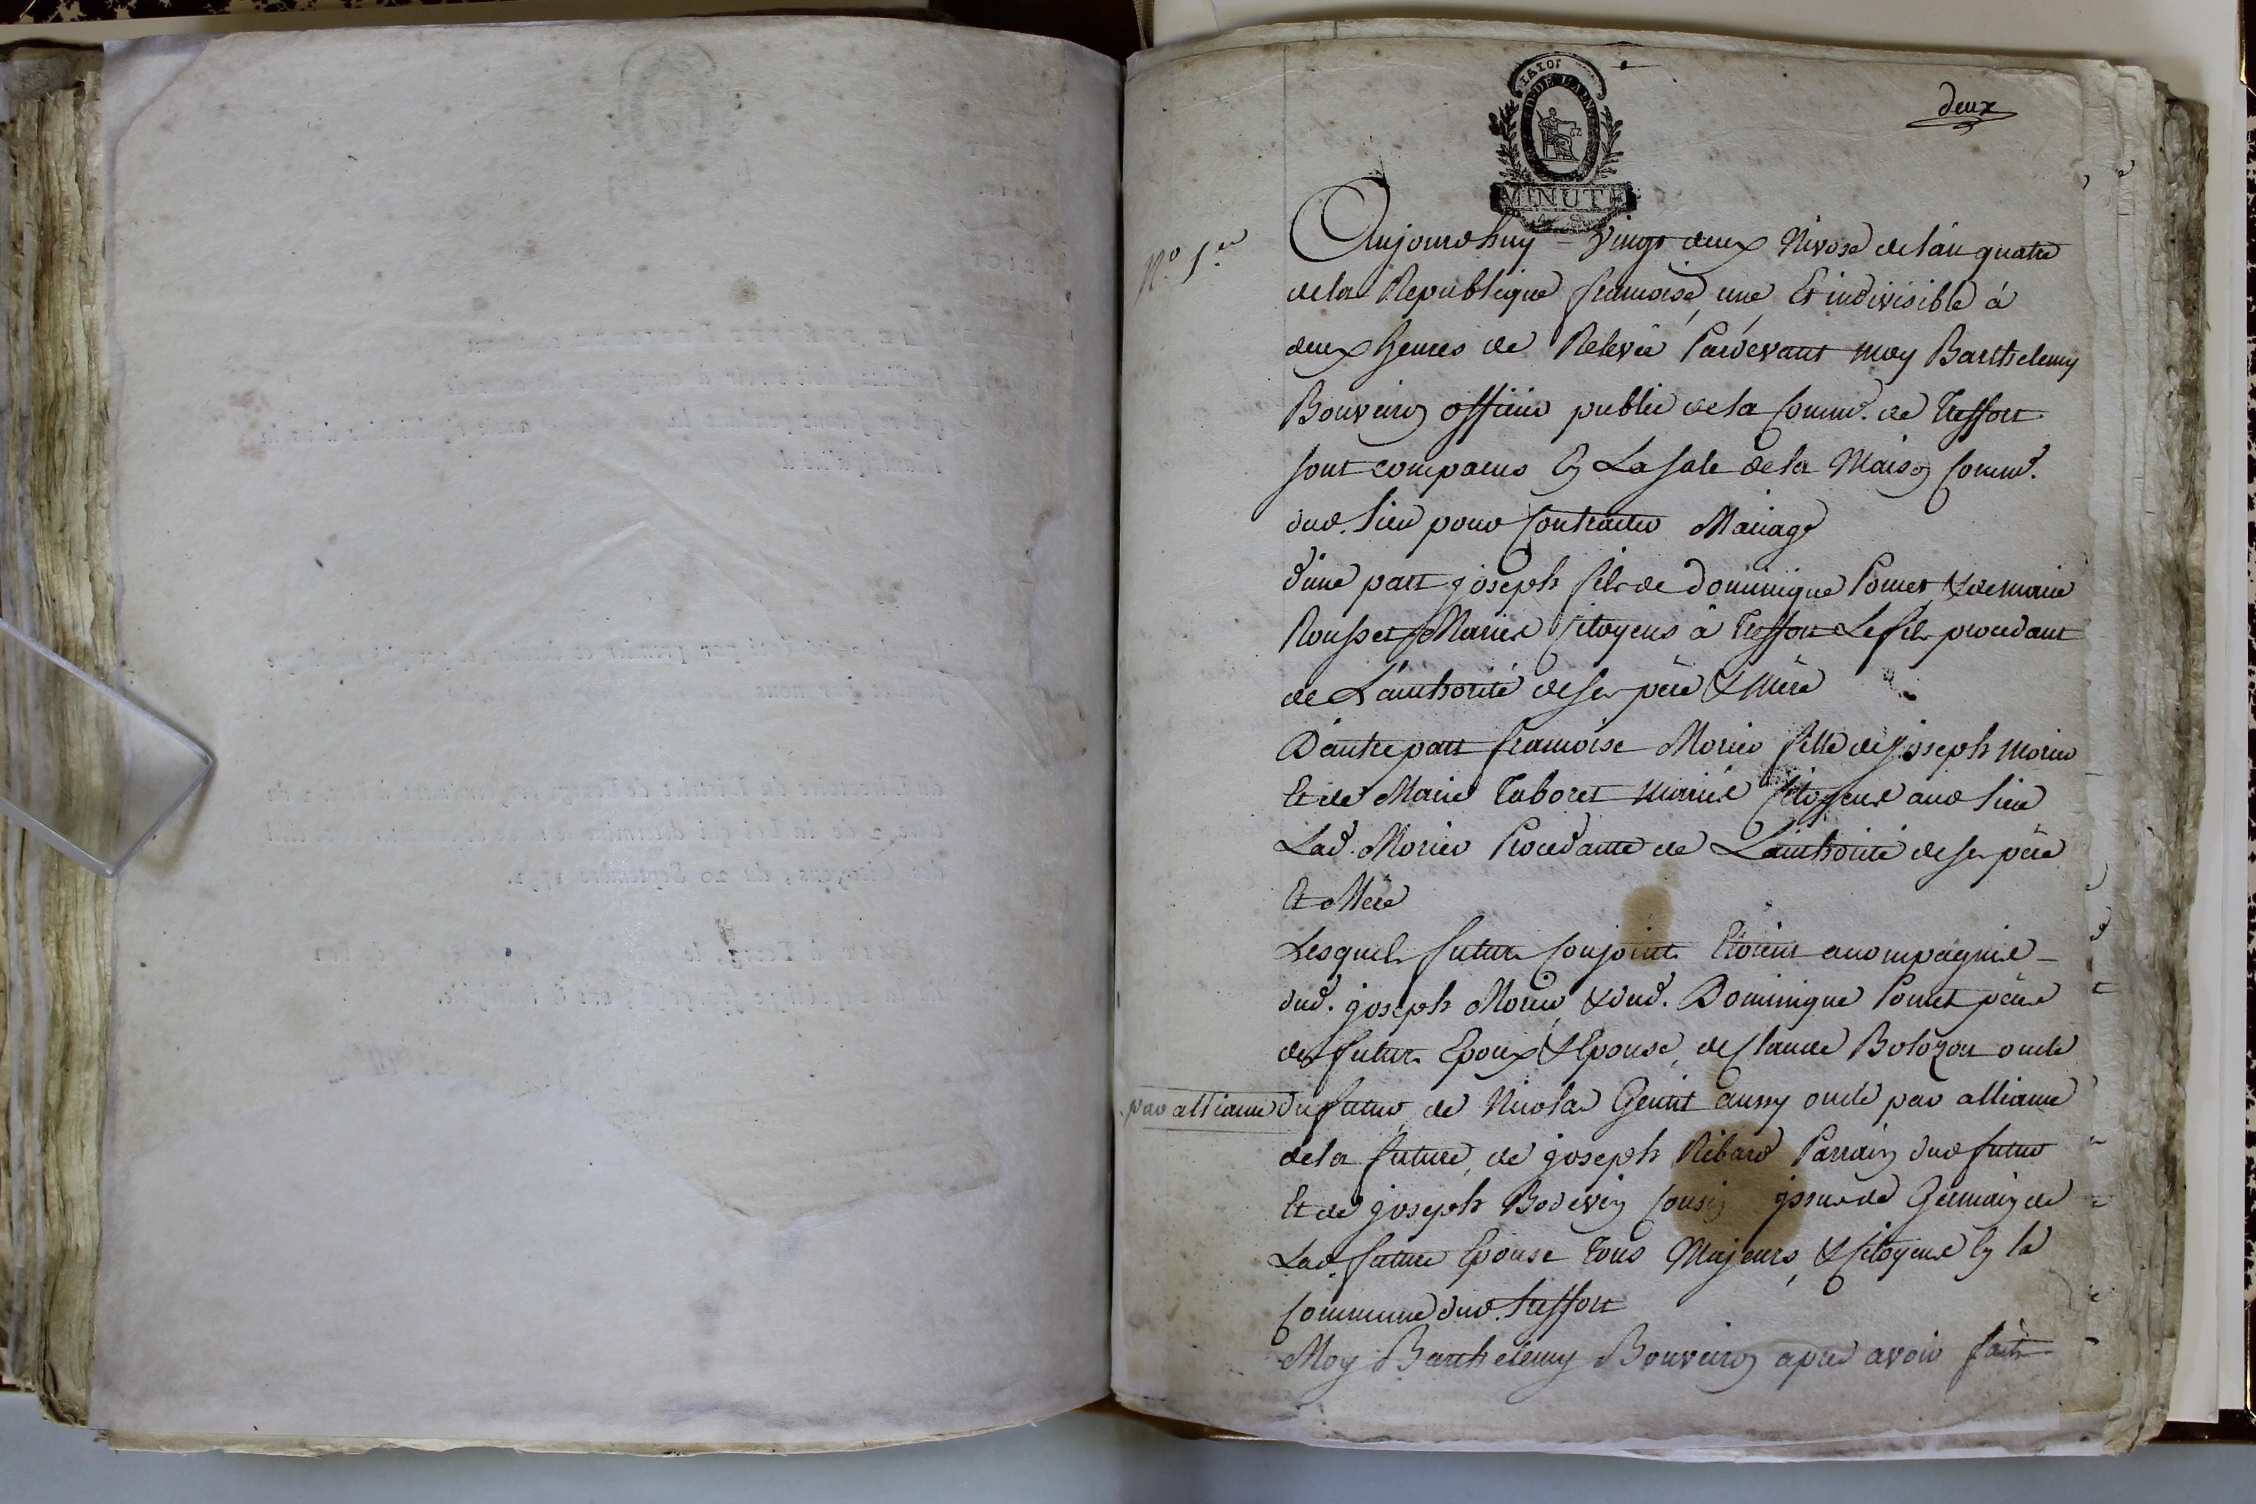 deux
MINUTE
N.o 1.er
Aujourdhuy = vingt deux Nivose de l'an quatre
de la Republique francoise, une, Et indivisible à
deux heures de Relevée Pardevant moy Barthelemy
Bouveiron officier public de la Comm.e de Treffort
sont comparus En La Sale de la Maison Comm.e
dud. Lieu pour Contracter Mariage
d'une part joseph fils de dominique Pomet & de marie
Rousset Mariés Citoyens à Treffort Le fils procedant
de L'authorité de ses père & Mère
D'autre part francoise Morier fille de joseph morier
Et de Marie Taboret mariés Citoyens aud Lieu
Lad. Morier Procedante de L'authorité de ses père
Et Mère
Lesquels futurs Conjoints Etoient acompagniés
dud. joseph Morier, & dud. Dominique Pomet pères
des futurs Epoux & Epouse, de Claude Bolozon oncle
par alliance du futur, de Nicolas Gentit aussy oncle par alliance
de la future, de joseph Ribard Parrain dud futur
Et de joseph Bodevin Cousin issus de Germain de
Lad. future Epouse Tous Majeurs, & Citoyens En la
Commune dud. Treffort
Moy Barthelemy Bouveiron après avoir fait